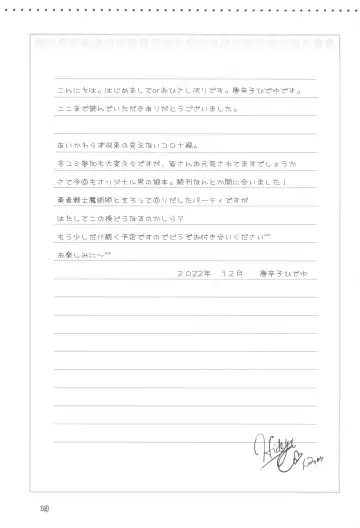 こんにちは。はじめましてorおひさしぶりです。唐辛子ひでゆです。
ここまで読んでいただきありがとうございました。
あいかわらず収束の見えないコロナ禍。
冬コミ参加も大変久々ですが、皆さんお元気されてますでしょうか
さて今回もオリジナル男の娘本。続刊なんとか間に合いました！
勇者戦士魔術師とそろって回りだしたパーティですが
はたしてこの後どうなるのかしら？
もう少しだけ続く予定ですのでどうぞお付き合いください^^
お楽しみに～^^
2022年 12月 唐辛子ひでゆ
Hideyu
19